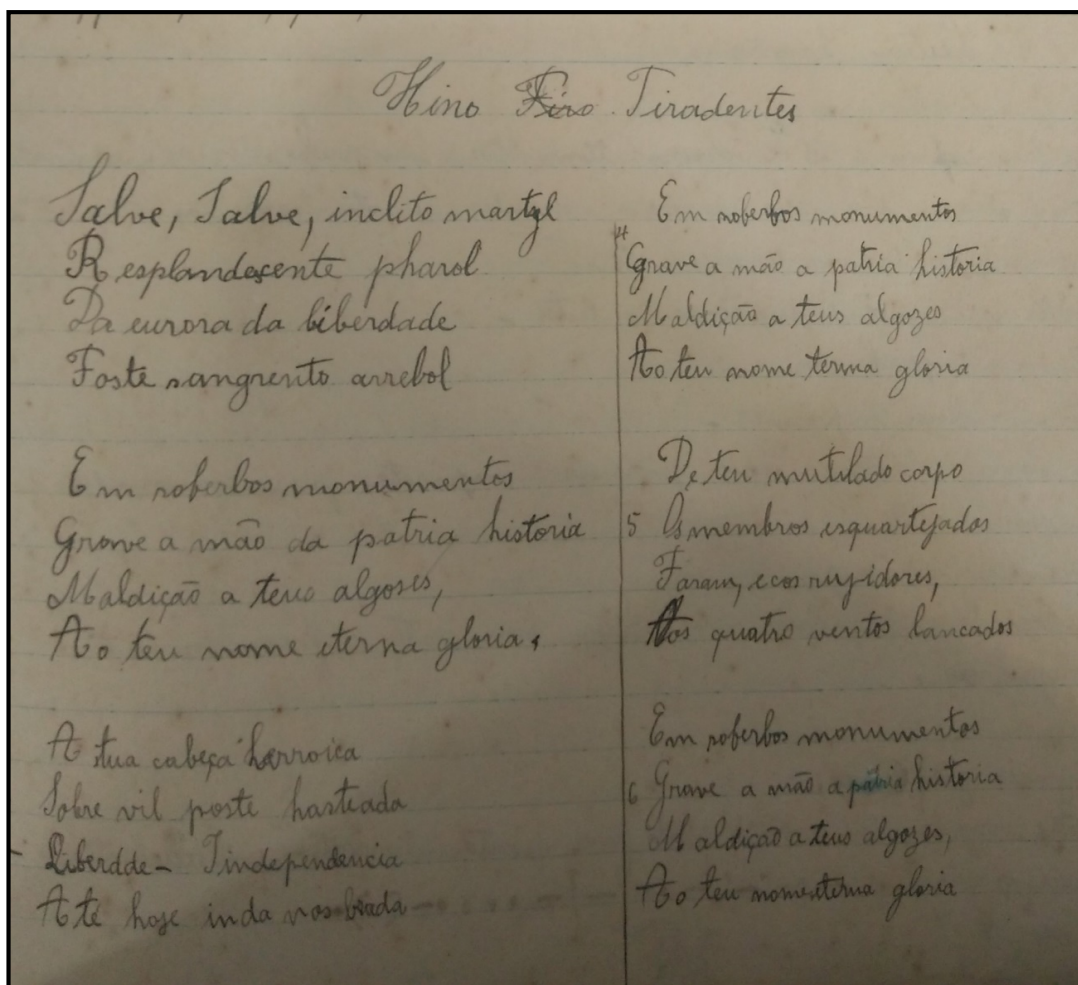 Hino Tiradentes
Salve, Salve, inclito martyl
Resplandescente pharol
Da eurora da liberdade
Foste sangrento arrebol
Em soberbos monumentos
Grave a mão da patria historia
Maldição a teus algoses,
Ao teu nome iterna gloria,
A tua cabeça harroica
Sobre vil poste hasteada
Liberdde - Jindependencia
Até hoje inda nos brada
4
Em soberbos monumentos
Grave a mão a patria historia
Maldição a teus algozes
Ao teu nome terma gloria
De teu mutilado corpo
5 Os membros esquartejados
Faram, ecos rujidores,
Aos quatro ventos lancados
Em soberbos monumentos
6 Grave a mão a pátria historia
Maldição a teus algozes,
Ao teu nome iterna gloria